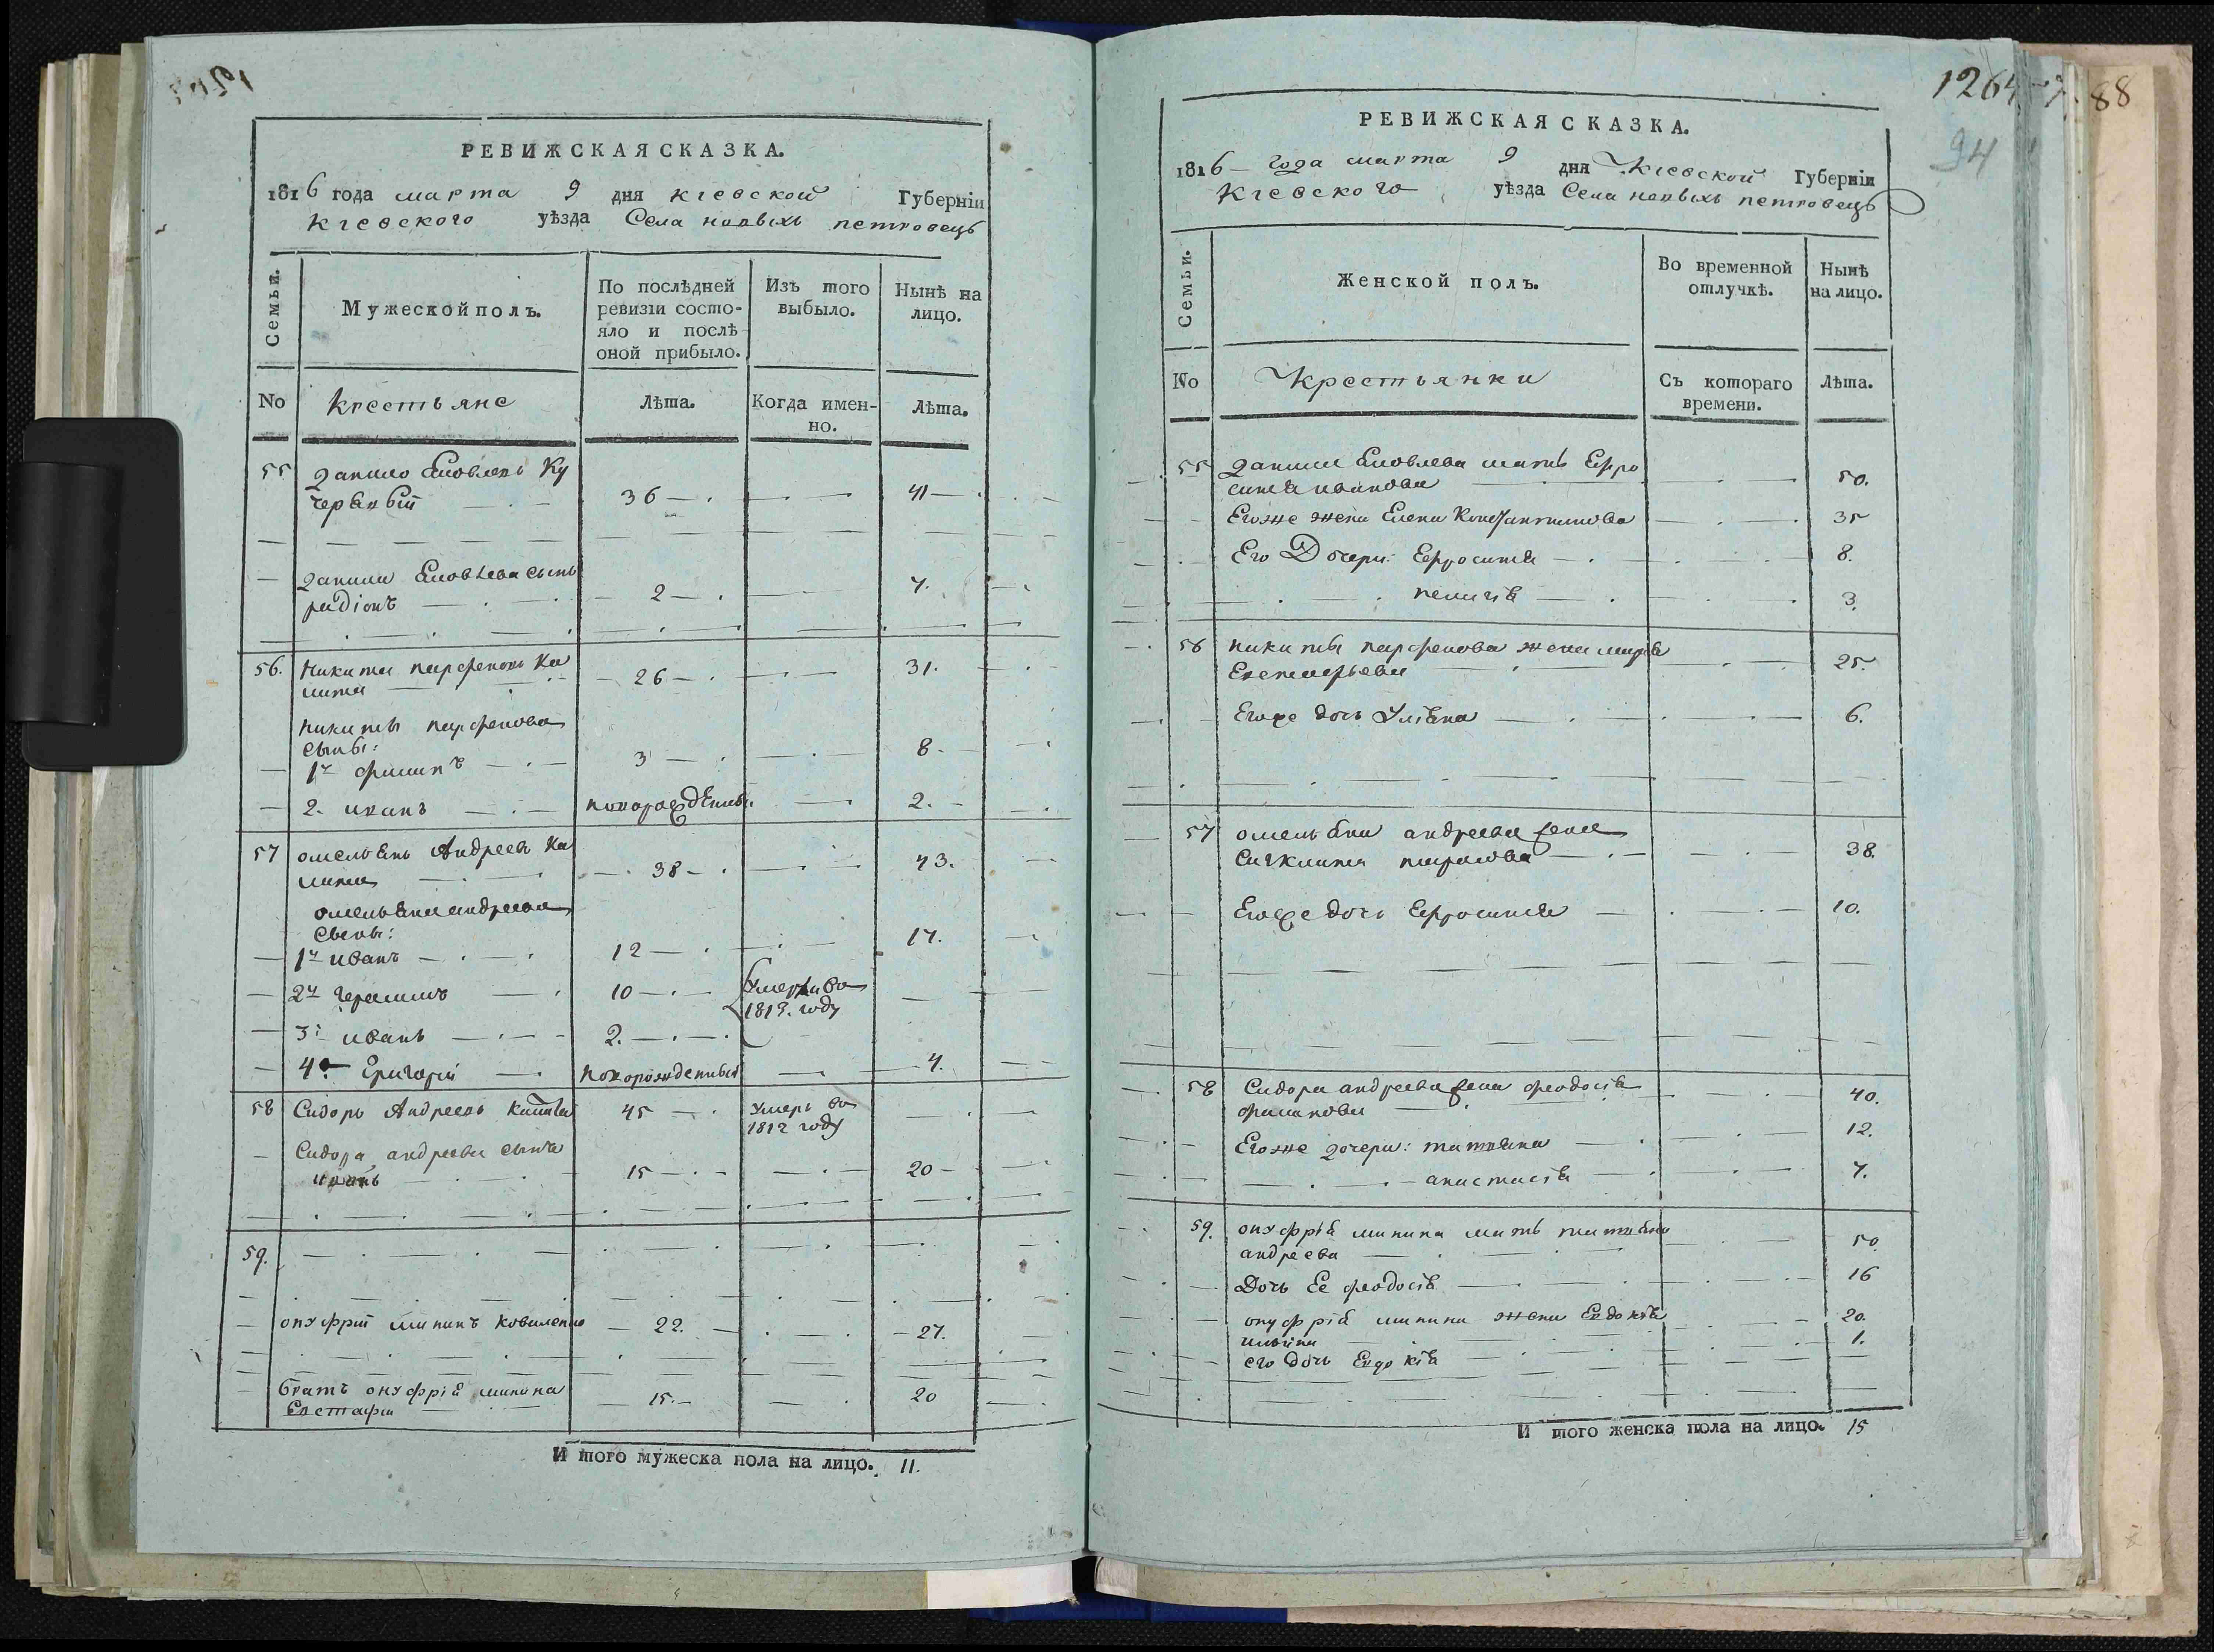 РЕВИЖСКАЯ СКАЗКА.
1816 года марта 9 дня кіевской Губерніи
Кіевского уѣзда Села новыхъ петровецъ
Семьи.
Мужеской полъ.
По послѣдней ревизіи состояло и послѣ оной прибыло.
Изъ того выбыло.
Нынѣ на лицо.
No
Крестьяне
Лѣта.
Когда именно.
Лѣта.
55 Данило Яковлевъ Ку
черявый 36 41
Данила Яковлева сынъ
радіонъ 2 7.
56. Никита парфеновъ Ка
лита 26 31.
никиты парфенова
сыны:
1й филипъ 3 8.
2. иванъ новорожденый 2.
57 омельянъ Андреевъ Ка
лита 38 43.
омельяна андреева
сыны:
1й иванъ 12 17.
2й герасимъ 10 Умерли во
1813. году
3й иванъ 2.
4й Григорій новорожденный 4.
58 Сидоръ Андреевъ калита 45 Умеръ во
1812 году
Сидора андреева сынъ
иванъ 15 20
59.
онуфрій мининъ коваленко 22. 27.
братъ онуфрія минина
Евстафій 15. 20
И того мужеска пола на лицо. 11.
1264 88
94
РЕВИЖСКАЯ СКАЗКА.
1816 года марта 9 дня Кіевской Губерніи
Кіевского уѣзда Села новыхъ петровецъ
Семьи.
Женской полъ.
Во временной отлучкѣ.
Нынѣ на лицо.
No
Крестьянки
Съ котораго времени.
Лѣта.
55 Данила Яковлева мать Ефро
синія иванова 50.
Егоже жена Елена Константинова 35
Его Дочери: Ефросинія 8.
пелагія 3.
56 никиты парфенова жена марія
Евстафьева 25.
Егоже дочь Уліяна 6.
57 омельяна андреева жена
тарасова 38.
Егоже дочь Ефросинія 10.
58 Сидора андреева жена феодосія
филипова 40.
Егоже дочери: татіяна 12.
анастасія 7.
59. онуфрія минина мать татіяна
андреева 50
Дочь Ее феодосія 16
онуфрія минина жена Евдокія 20.
ильина
его дочь Евдокія 1.
И того женска пола на лицо. 15